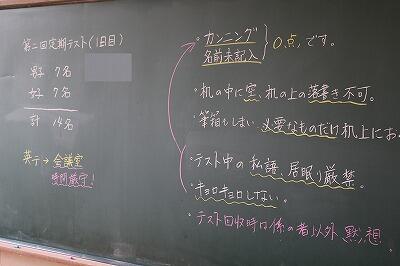 第二回定期テスト(1日目)
男子 7名
女子 7名
計 14名
英テ→会議室
時間厳守!
・カンニング
名前未記入
}0点、です。
・机の中に空、机の上の落書き不可。
・筆箱もしまい、必要なものだけ机上にお
・テスト中の私語、居眠り厳禁。
・キョロキョロしない。
・テスト回収時は係の者以外、黙想